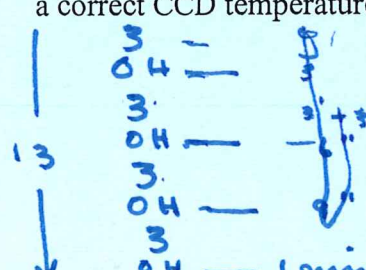 a correct CCD temperature
3 —
OH —
3.
OH —
13
3.
OH —
3
OH —